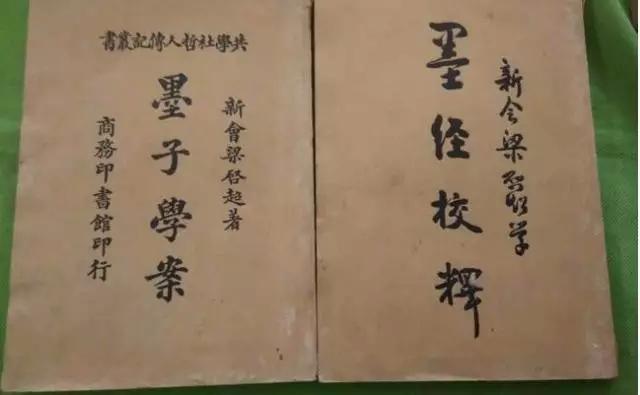 共學社哲人傳記叢書
新會梁啓超著
墨子學案
商務印書館印行
新会梁学
墨经校釋